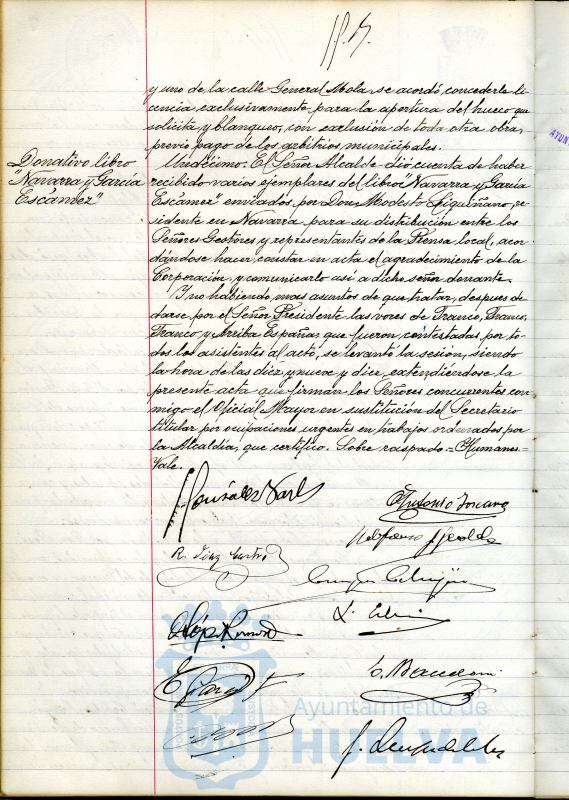 y uno de la calle General Mola se acordó concederle li-
cencia exclusivamente para la apertura del hueco que
solicita y blanqueo, con exclusión de toda otra obra,
previo pago de los arbitrios municipales.
Donativo libro
"Navarra y García
Escámez"
Undécimo: El Señor Alcalde dió cuenta de haber
recibido varios ejemplares del libro "Navarra y García
Escámez" enviados por Don Modesto re-
sidente en Navarra para su distribución entre los
Señores Gestores y representantes de la Prensa local, acor-
dándose hacer constar en acta el agradecimiento de la
Corporación y comunicarlo así a dicho señor donante.
Y no habiendo mas asuntos de que tratar, despues de
darse por el Señor Presidente las voces de Franco, Franco,
Franco y Arriba España, que fueron contestadas por to-
dos los asistentes al acto, se levantó la sesión, siendo
la hora de las diez y nueve y diez, extendiéndose la
presente acta que firman los Señores concurrentes con-
migo el Oficial Mayor en sustitución del Secretario
titular por ocupaciones urgentes en trabajos ordenados por
la Alcaldía, que certifico. Sobre raspado = Humanes =
Vale.
González
Antonio Toscano
R. Díaz Castro
Ayuntamiento de
HUELVA